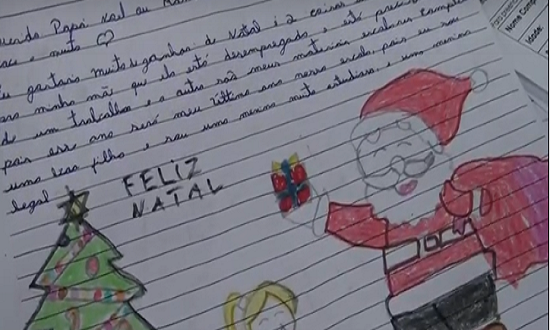 Querido Papai Noel ou Mamãe
muito
Eu gostaria muito de ganhar de Natal é 2 coisas
para minha mãe que ela está desempregada e está precis
de um trabalho e o outro são meus materiais escolares completo
pois esse ano será meu último ano nessa escola, pois eu sou
uma boa filha e sou uma menina muito estudiosa, e uma menina
legal
FELIZ
NATAL
Nome Comp
Idade